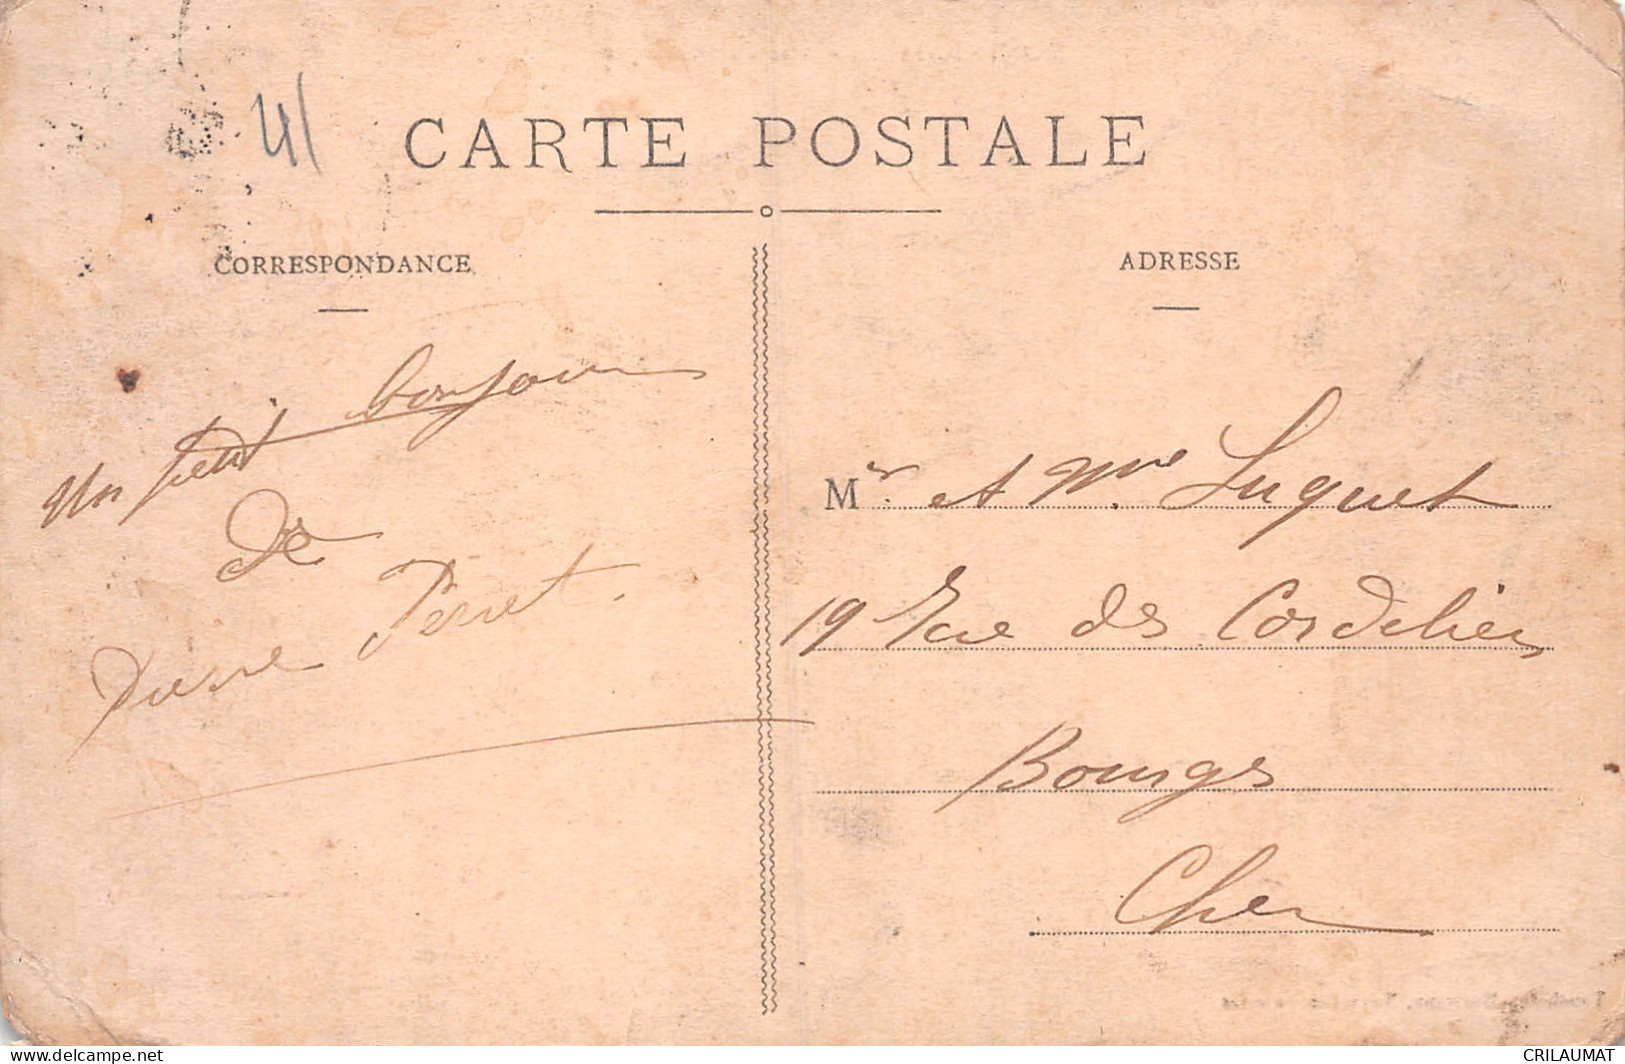 41
CARTE POSTALE
CORRESPONDANCE
Un petit bonjour
de
Pierre Perret.
ADRESSE
Mr et Mme Luquet
19 Rue des Cordeliers
Bourges
Cher
www.delcampe.net
CRILAUMAT